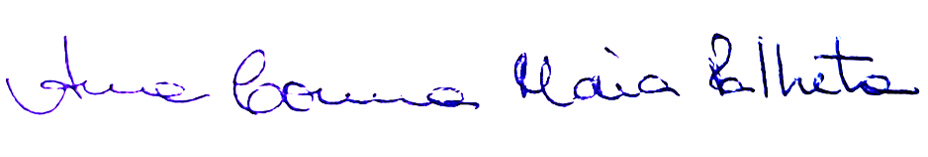 Ana Corina Maia Palheta